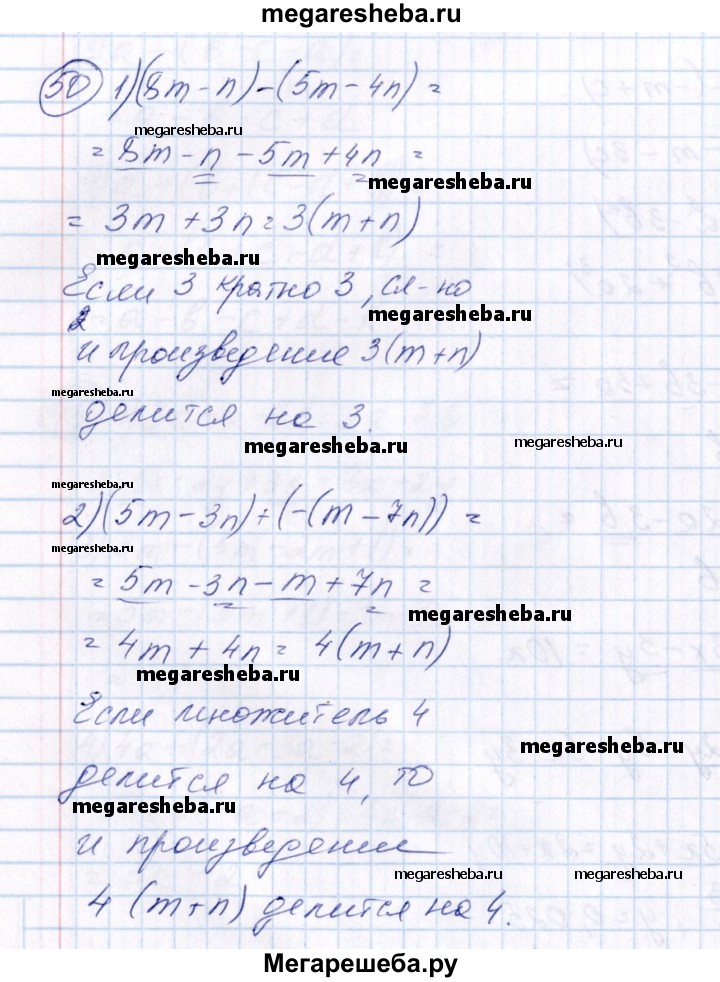 megaresheba.ru
50 1) (8m - n) - (5m - 4n) =
megaresheba.ru
= 8m - n - 5m + 4n =
megaresheba.ru
= 3m + 3n = 3(m + n)
megaresheba.ru
Если 3 кратно 3, сл-но
megaresheba.ru
и произведение 3(m + n)
megaresheba.ru
делится на 3.
megaresheba.ru
megaresheba.ru
megaresheba.ru
2) (5m - 3n) + (-(m - 7n)) =
megaresheba.ru
= 5m - 3n - m + 7n =
megaresheba.ru
= 4m + 4n = 4(m + n)
megaresheba.ru
Если множитель 4
megaresheba.ru
делится на 4, то
megaresheba.ru
и произведении
megaresheba.ru
megaresheba.ru
4 (m + n) делится на 4.
Мегарешеба.ру